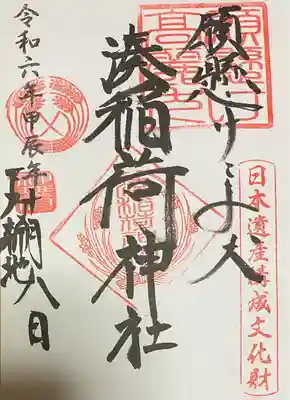 願懸けこま犬
日本遺産構成文化財
湊稲荷神社
令和六年甲辰年
八日